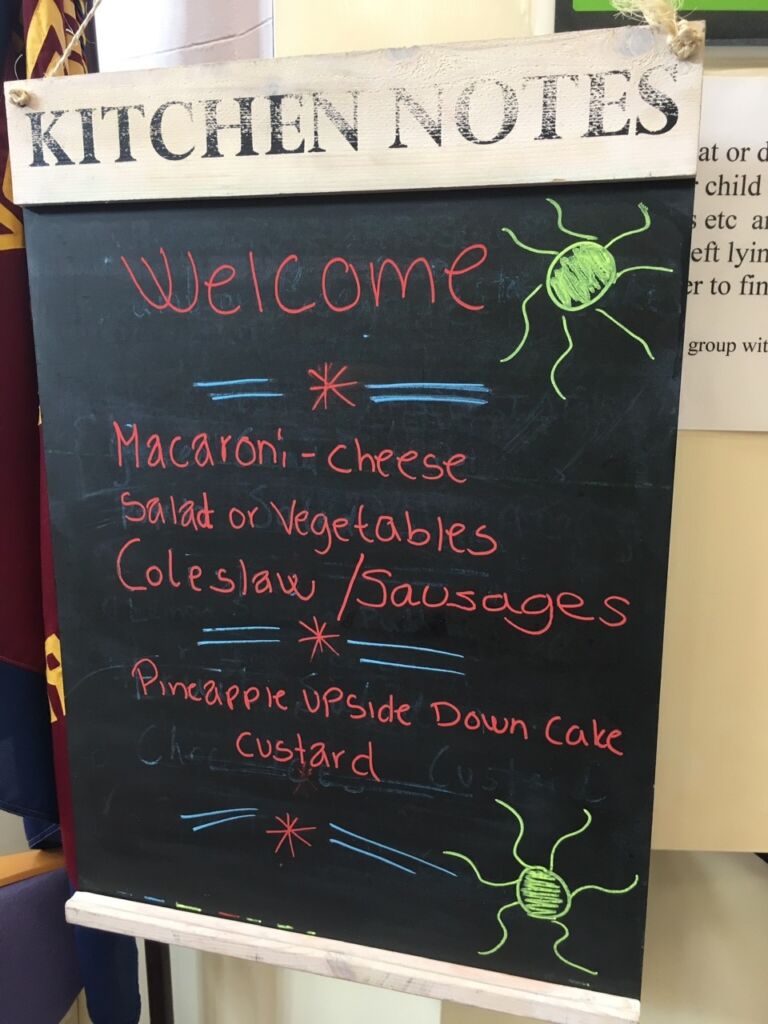 KITCHEN NOTES
Welcome
Macaroni - cheese
Salad or Vegetables
Coleslaw / Sausages
Pineapple upside Down Cake
custard
at or d
child
etc
eft lyin
er to fin
group wit